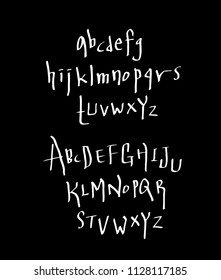 abcdefg
hijklmnopqrs
tuvwxyz
ABCDEFGHIJU
KLMNOPQR
STVWXYZ
shutterstock.com · 1128117185